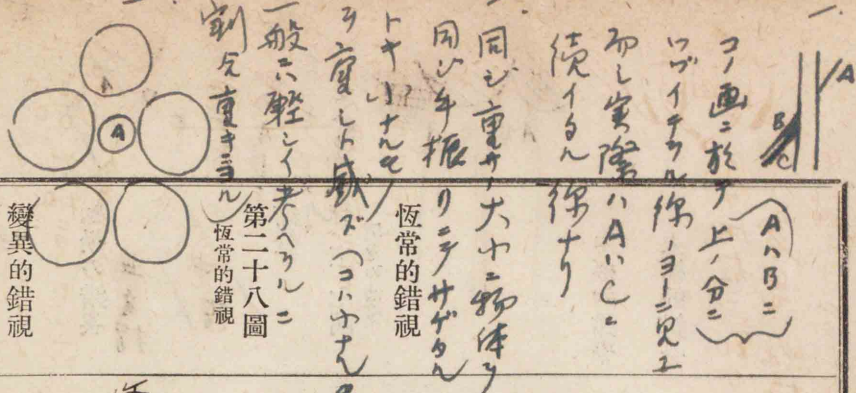 A
B
C
コノ画ニ於テ上ノ分ニ
(AハBニ)
ツヅイテヰル線ノヨーニ見エ
而シ実際ハAハCニ
続イタル線ナリ
同ジ重サノ大小ニ物体ヲ
同ジ手振リニテサゲタル
トキ小ナル
ヲ重シト感ズ(コハ小ナル
一般ニハ軽シイ考ヘラルニ
割合重キニヨル)
A
恆常的錯視
第二十八圖
恆常的錯視
變異的錯視